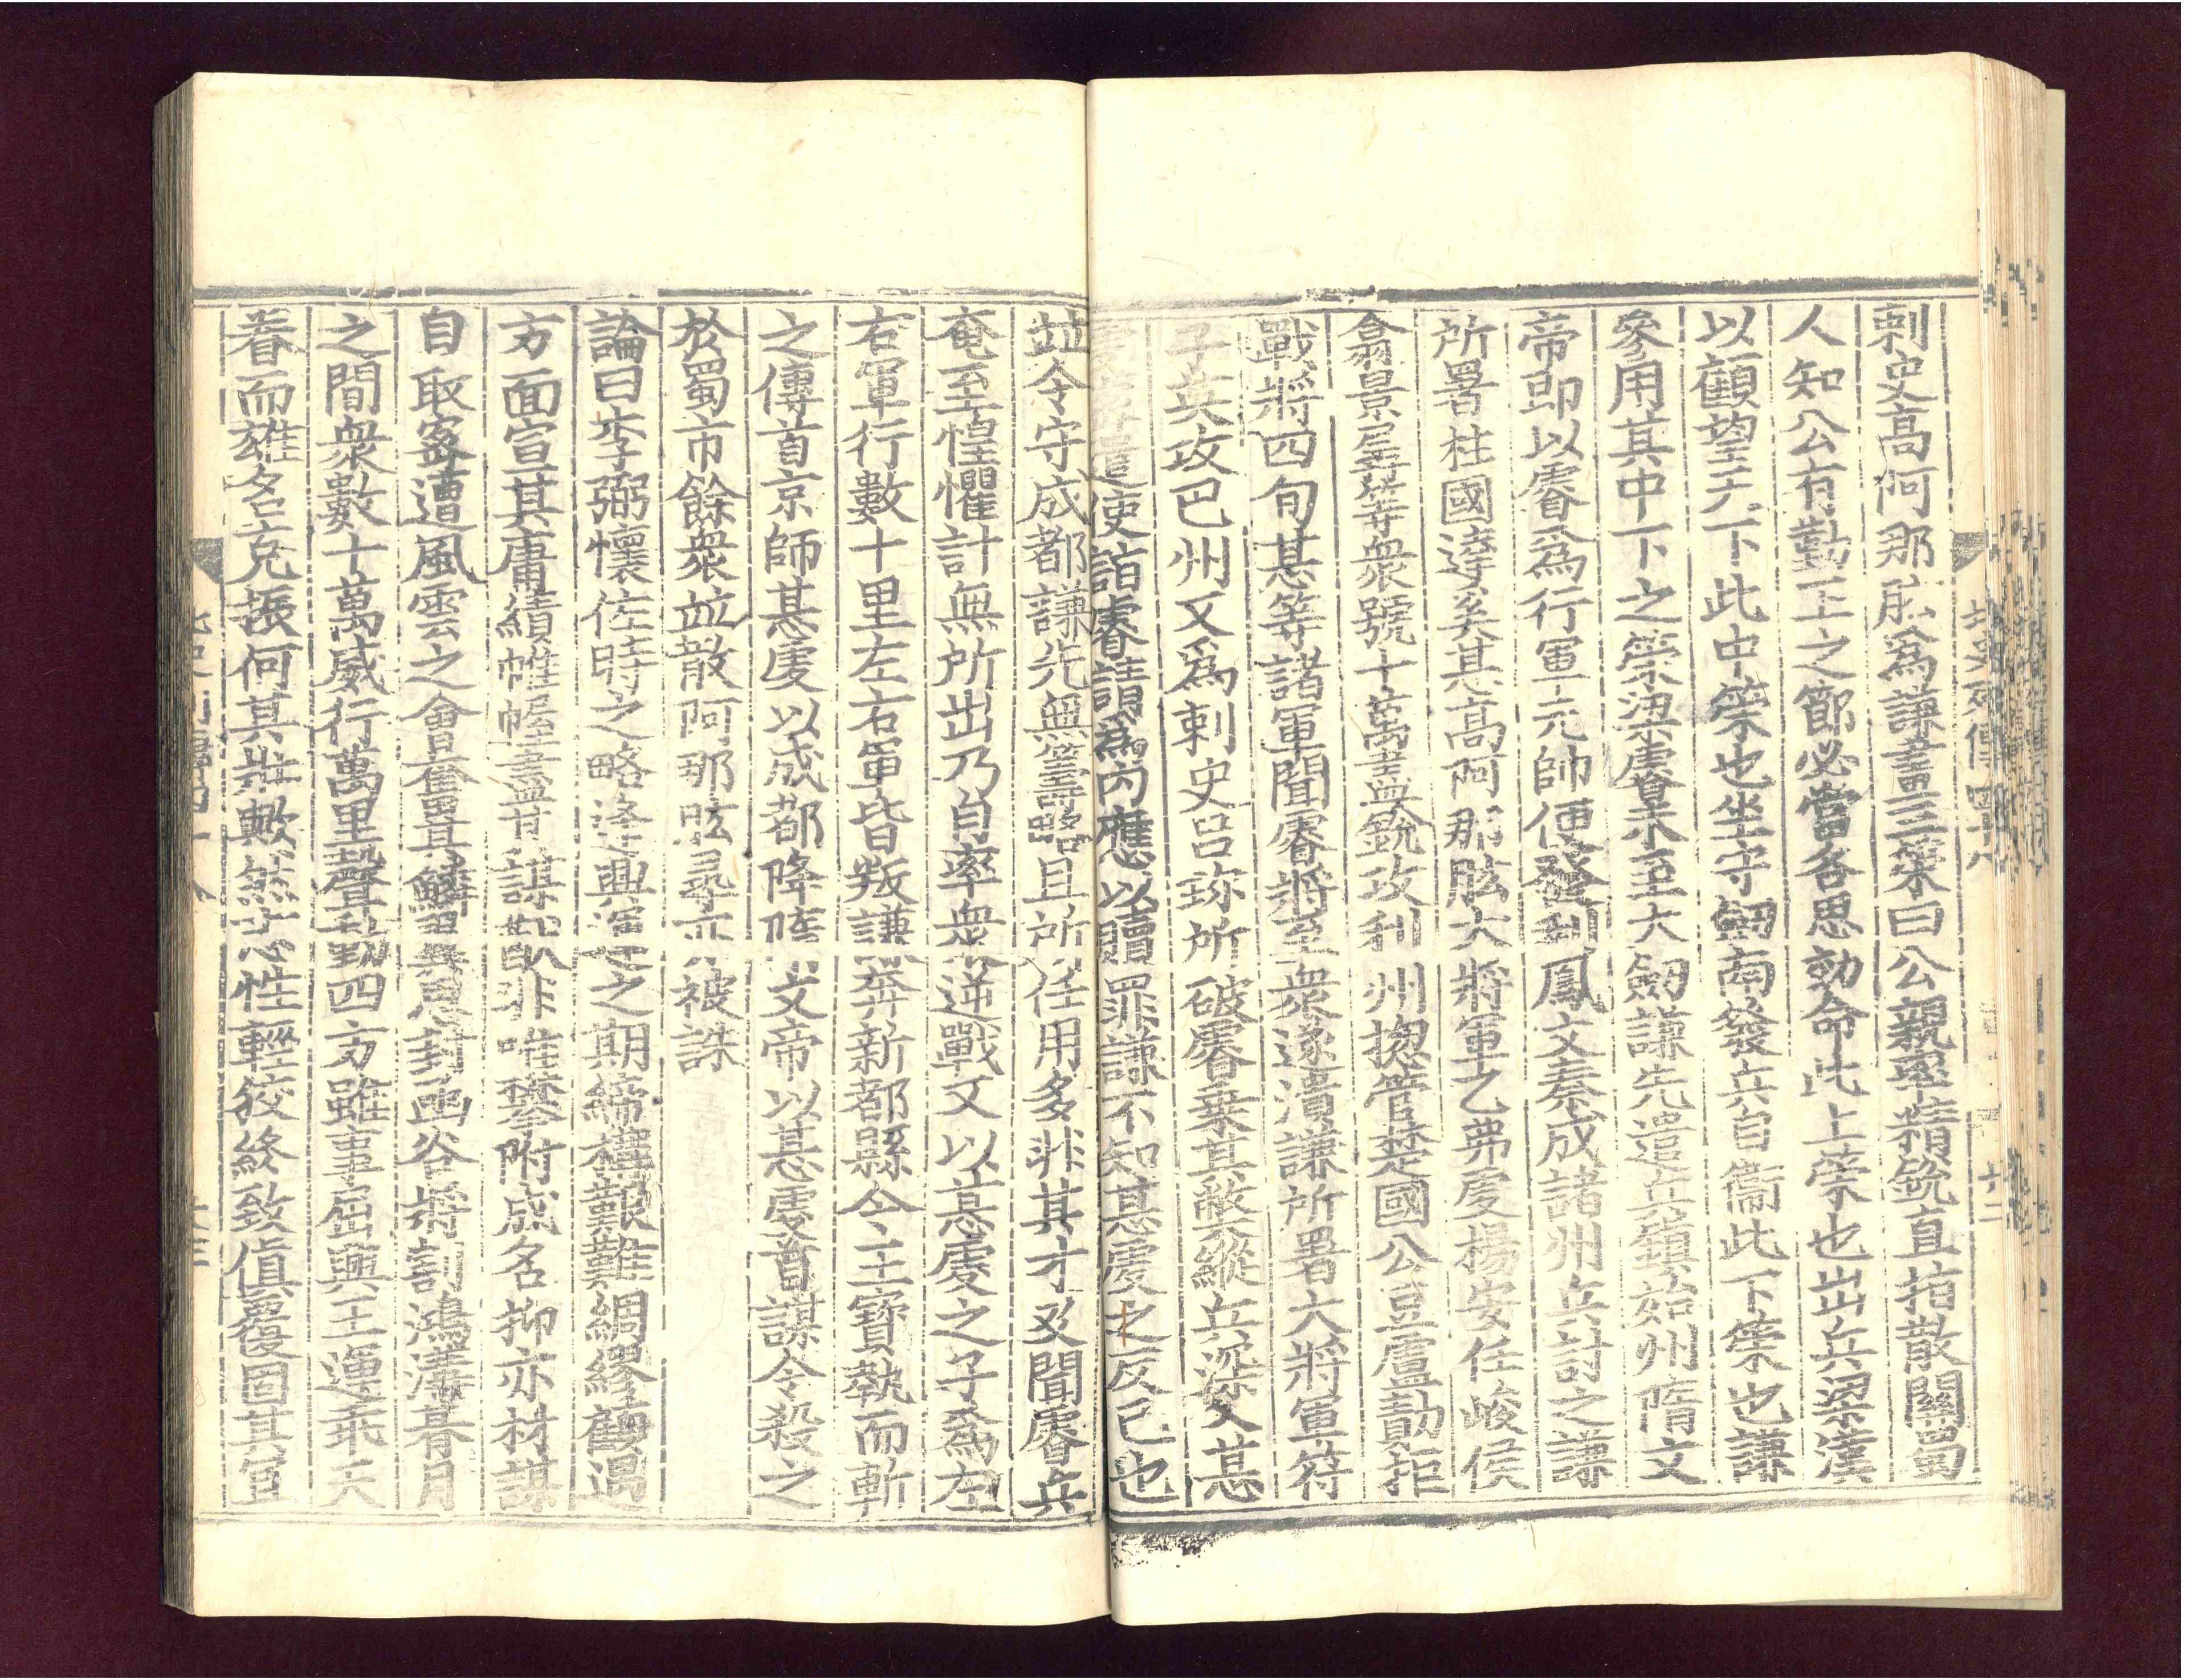 刺史高阿那肱爲謙畫三策曰公親率精銳直指散關蜀
人知公有勤王之節必當各思効命此上策也出兵梁漢
以顧望天下此中策也坐守劒南發兵自衞此下策也謙
參用其中下之策梁睿未至大劒謙先遣兵鎮始州隋文
帝即以睿爲行軍元帥便發利鳳文秦成諸州兵討之謙
所署柱國達奚惎高阿那肱大將軍乙弗虔楊安任峻侯
翕景孱等衆號十萬盡銳攻利州揔管楚國公豆盧勣拒
戰將四旬惎等諸軍聞睿將至衆遂潰謙所署大將軍符
子英攻巴州又爲刺史呂珎所破睿乗其敝縱兵深入惎
虔密遣使詣睿請爲内應以贖罪謙不知惎虔之反己也
並令守成都謙先無籌略且所任用多非其才及聞睿兵
奄至惶懼計無所出乃自率衆逆戰又以惎虔之子爲左
右軍行數十里左右軍皆叛謙奔新都縣令王寶執而斬
之傳首京師惎虔以成都降隋文帝以惎虔首謀令殺之
於蜀市餘衆並散阿那肱尋亦被誅
論曰李弼懷佐時之略逢興運之期締構艱難綢繆顧遇
方面宣其庸績帷幄盡其謀猷非唯攀附成名抑亦材謀
自取宻遭風雲之會奮其鱗翼思封函谷將割鴻溝朞月
之間衆數十萬威行萬里聲動四方雖事屈興王運乖天
眷而雄名克振何其壯歟然志性輕狡終致傎覆固其宜
北史列傳四十八